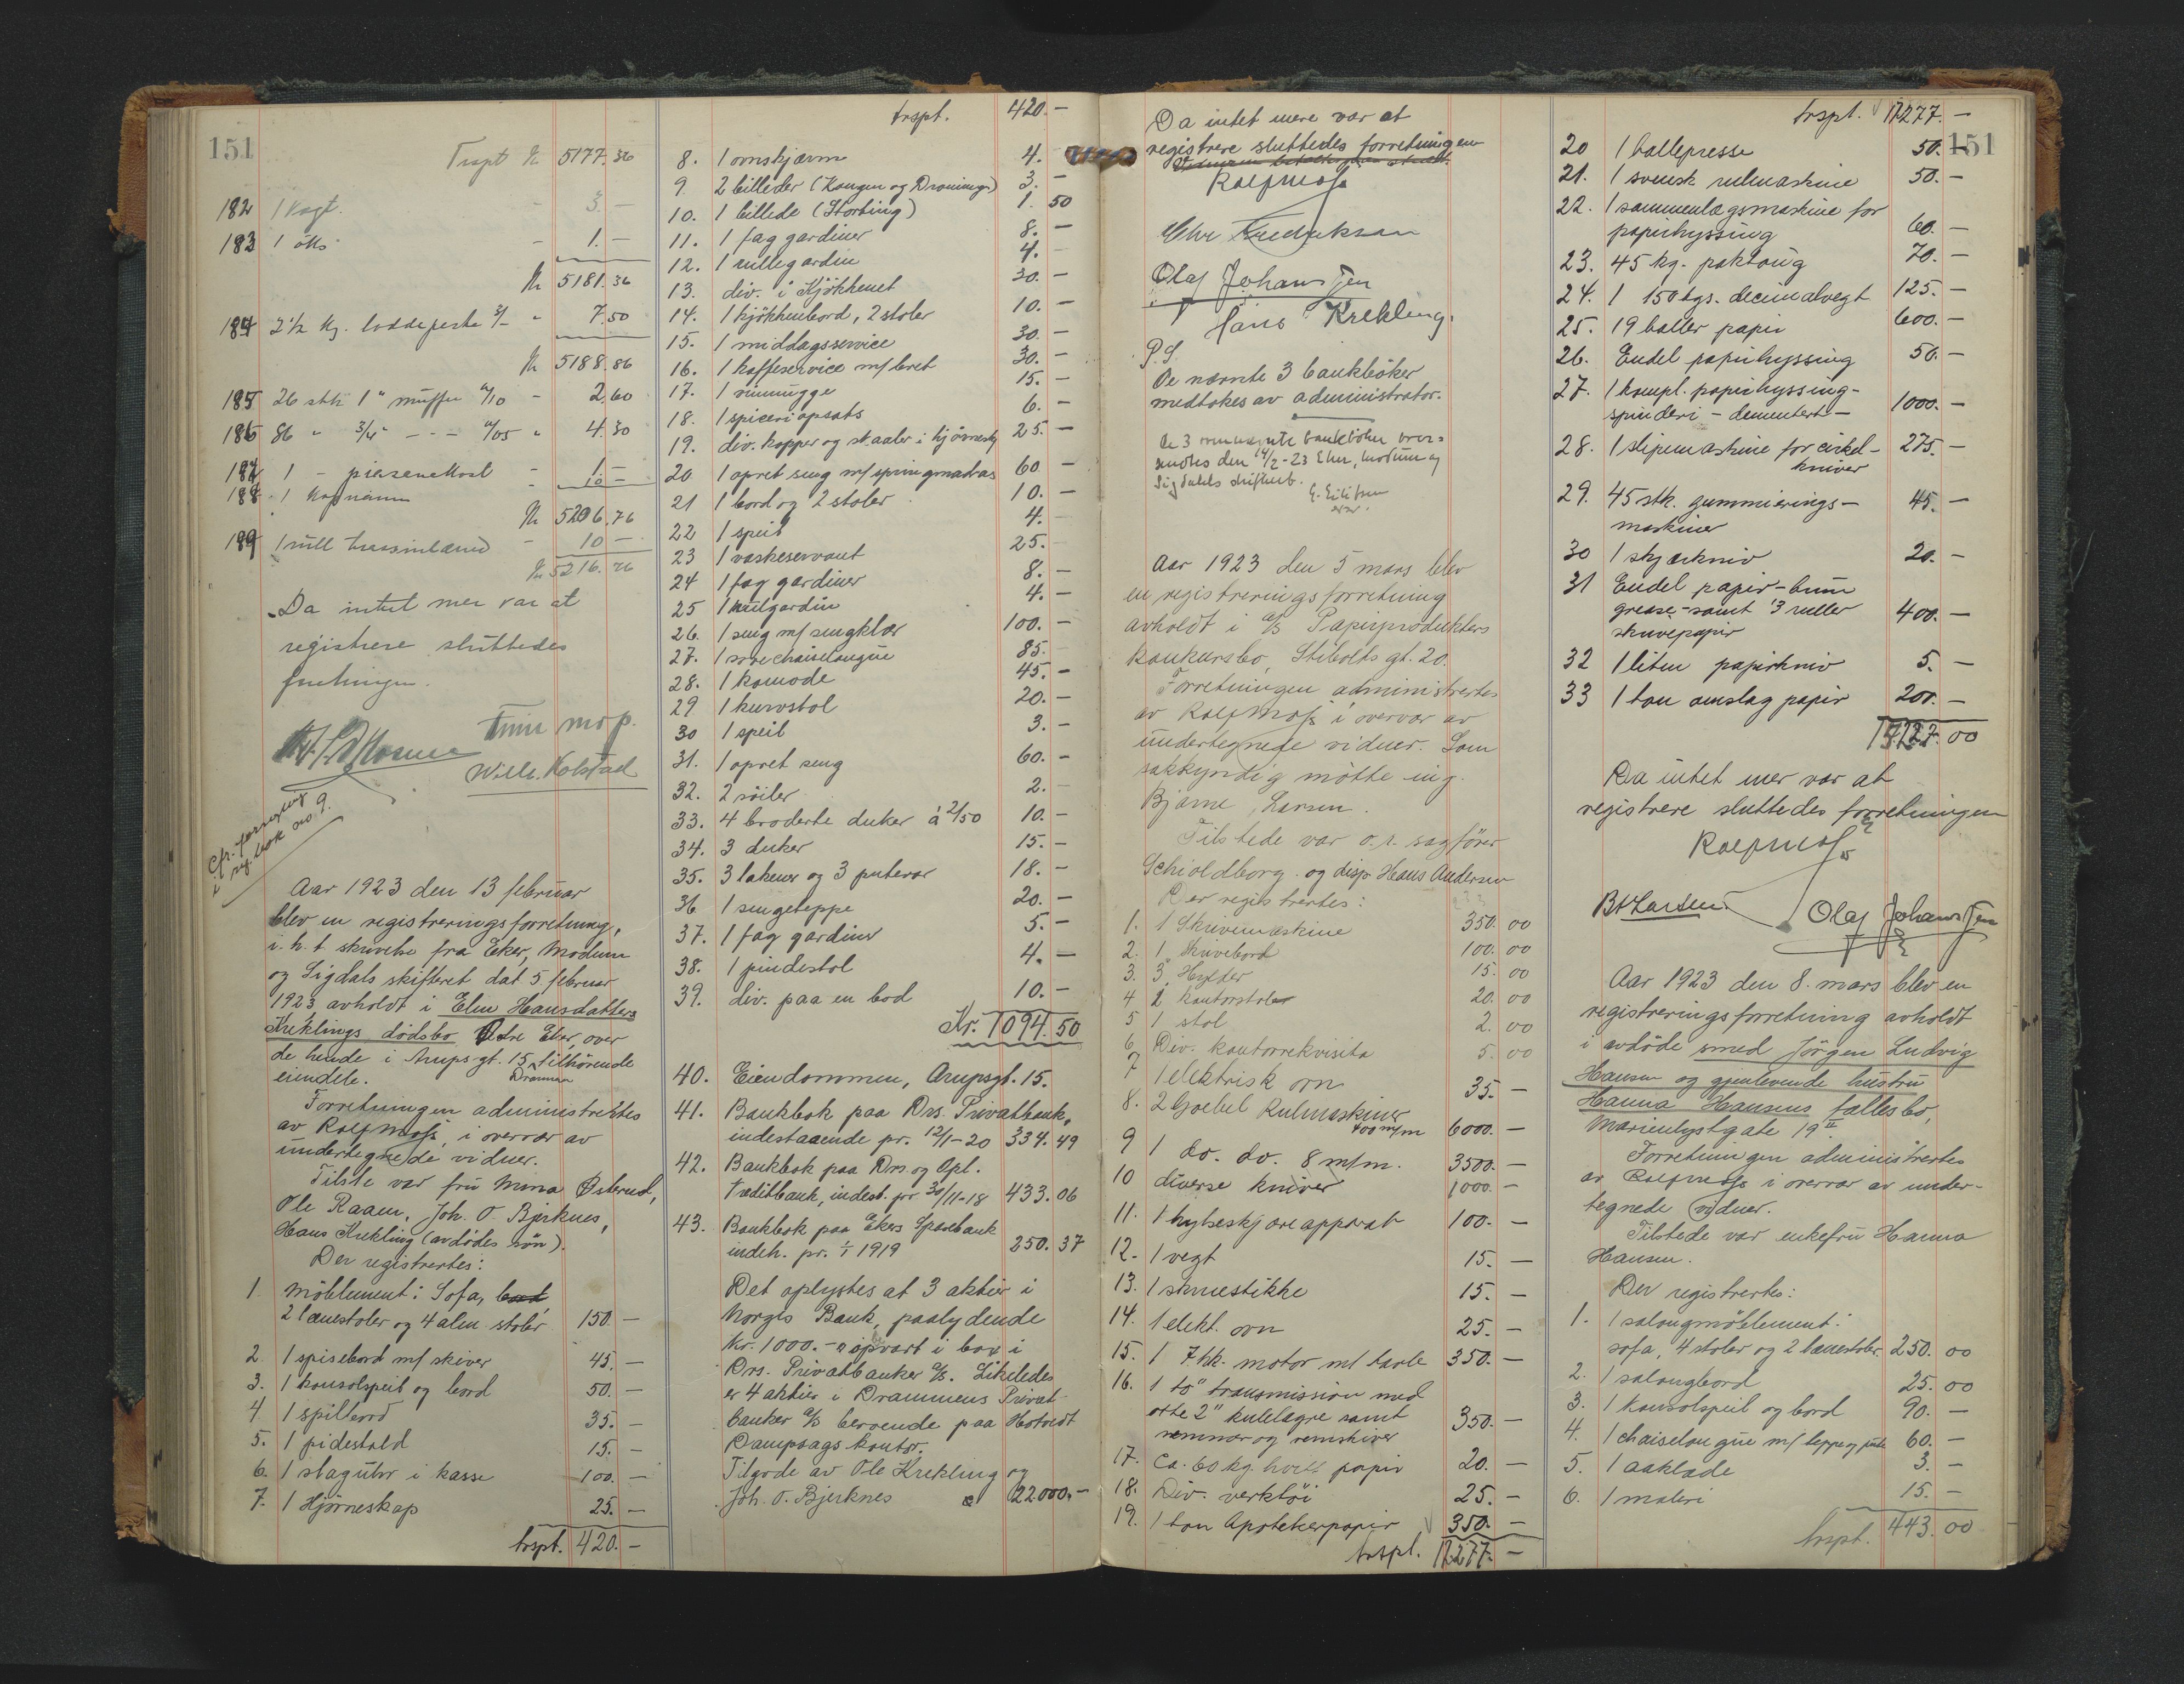 151
Trspt Kr 5177.36
182 1 Vogt. - 3.-
183 1 öks - 1.-
Kr 5181.36
184 2½ kg. loddepasta 3/- " 7.50
Kr 5188.86
185 26 stk 1" muffer a/10 - 2.60
186 86 " 3/4" - - - a/05 " 4.30
187 1 - piasavakost - 1.-
188 1 - 10-
Kr 5206.76
189 1 rull - 10-
Kr 5216.76
Da intet mer var at
registrere sluttedes
forretningen.
Wilh. Kolstad
Cfr.
i reg. bok no 9.
Aar 1923 den 13 februar
blev en registreringsforretning,
i. h. t. skrivelse fra Eker, Modum
og Sigdals skifteret dat 5 februar
1923 avholdt i Elen Hansdatters
Kreklings dödsbo Övre Eker, over
de hende i Arups-gt. 15, tilhörende
Drammen
eiendele.
Forretningen administrertes
av Rolf Moss, i overvær av
undertegnede vidner.
Tilste var fru Mina Østerud,
Ole Raaen, Joh. O. Bjerknes,
Hans Krekling (avdödes sön).
Der registrertes:
1. Möblement: Sofa, bord
2 lænestoler og 4 alm. stoler 150.-
2. 1 spisebord m/ skiver 45.-
3. 1 konsolspeil og bord 50.-
4 1 spillbord 35.-
5. 1 pidestald 15.-
6. 1 slaguhr i kasse 100.-
7. 1 Hjörneskap 25.-
trspt. 420.-
trspt. 420.-
8. 1 ovnskjærm 4.-
9. 2 billeder (Kongen og Droningen) 3.-
10. 1 billede (Storting) 1.50
11. 1 fag gardiner 8.-
12. 1 rullegardin 4.-
13. div. i Kjökkenet 30.-
14. 1 kjökkenbord, 2 stoler 10.-
15. 1 middagsservice 30.-
16. 1 kaffeservice m/ bret 30.-
17. 1 vinmugge 15.-
18. 1 spiceriopsats 6.-
19. div. kopper og skaaler i hjörnesk. 25.-
20 1 opret seng m/ springmadras 60.-
21 1 bord og 2 stoler 10.-
22 1 speil 4.-
23 1 vaskeservant 25.-
24 1 fag gardiner 8.-
25 1 rulgardin 4.-
26. 1 seng m/ sengklær 100.-
27. 1 sovechaiselongue 85.-
28. 1 komode 45.-
29 1 kurvstol 20.-
30 1 speil 3.-
31. 1 opret seng 60.-
32. 2 söiler 2.-
33. 4 broderte duker à 2/50 10.-
34. 3 duker 15.-
35. 3 lakener og 3 putevar 18.-
36 1 sengeteppe 20.-
37. 1 fag gardiner 5.-
38. 1 pindestol 4.-
39. div. paa en bod 10.-
Kr. 1094.50
40. Eiendommen, Arupsgt. 15.
41. Bankbok paa Drs. Privatbank,
indestaaende pr. 12/1-20 334.49
42. Bankbok paa Drs. og Opl.
Kreditbank, indest. pr 30/11-18 433.06
43. Bankbok paa Ekers Sparebank
indeh. pr. 1/1 1919 250.37
Det oplystes at 3 aktier i
Norges Bank, paalydende
Kr. 1000.- er opbevart i box i
Drs. Privatbanker a/s. Likeledes
er 4 aktier i Drammens Privat-
banker a/s beroende paa Hotvedt
Dampsags kontor.
Tilgode av Ole Krekling og
Joh. O. Bjerknes 22000.-
Da intet mere var at
registrere sluttedes forretningen
Rolf Moss
Chr Fredriksen
Olaf Johansen
Hans Krekling.
P.S.
De nævnte 3 bankböker
medtokes av administrator.
De 3 ovennævnte bankböker over-
sendtes den 14/2-23 Eker, Modum og
Sigdals skifteret.
E. Eilifsen
Aar 1923 den 5 mars blev
en registreringsforretning
avholdt i a/s Papirprodukters
konkursbo, Stibolts gt. 20.
Forretningen administrertes
av Rolf Moss i overvær av
undertegnede vidner. Som
sakkyndig mötte ing.
Bjarne Larsen.
Tilstede var o.r. sagförer
Schioldborg og disp Hans Andersen
Der registrertes:
1. 1 Skrivemaskine 350.00
2. 1 Skrivebord 100.00
3. 3 Hylder 15.00
4 2 kontorstoler 20.00
5 1 stol 2.00
6 Div. kontorrekvisita 5.00
7 1 elektrisk ovn 35.-
8. 2 Goebel Rulmaskiner
400 m/m 6000.-
9 1 do. do. 8 m/m. 3500.-
10 diverse kniver 1000.-
11. 1 hylseskjæreapparat 100.-
12. 1 vegt 15.-
13. 1 skruestikke 15.-
14. 1 elekt. ovn 25.-
15. 1 7 hk. motor m/ tavle 350.-
16. 1 to" transmission med
otte 2" kulelagre samt
remmer og remskiver 350.-
17. Ca. 60 kg. hvitt papir 20.-
18. Div. verktöi 25.-
19. 1 ton Apotekerpapir 350.-
trspt. 12277.-
151
trspt. 12277.-
20 1 ballepresse 50.-
21. 1 svensk rulmaskine 50.-
22. 1 sammenlægsmaskine for
papirhyssing 60.-
23. 45 kg. paktöug 70.-
24. 1 150 kgs. decimalvegt 125.-
25. 19 baller papir 600.-
26. Endel papirhyssing 50.-
27. 1 kompl. papirhyssing-
spinderi - dementert - 1000.-
28. 1 slipemaskine for cirkel-
kniver 275.-
29. 45 stk. gummierings-
maskiner 45.-
30 1 skjærkniv 20.-
31 Endel papir - brun
grease - samt 3 ruller
skrivepapir 400.-
32 1 liten papirkniv 5.-
33 1 ton omslag papir 200.-
00
Da intet mer var at
registrere sluttedes forretningen
Rolf Moss
B Larsen.
Olaf Johansen
Aar 1923 den 8. mars blev en
registreringsforretning avholdt
i avdöde smed Jörgen Ludvig
Hansen og gjenlevende hustru
Hanna Hansens fællesbo,
Marienlystgate 19 II.
Forretningen administrertes
av Rolf Moss i overvær av under-
tegnede vidner.
Tilstede var enkefru Hanna
Hansen.
Der registrertes:
1. 1 salongmöblement:
sofa, 4 stoler og 2 lænestoler. 250.00
2. 1 salongbord 25.00
3. 1 Konsolspeil og bord 90.-
4. 1 chaiselongue m/ teppe og pute 60.-
5. 1 aaklæde 3.-
6. 1 maleri 15.-
trspt. 443.00